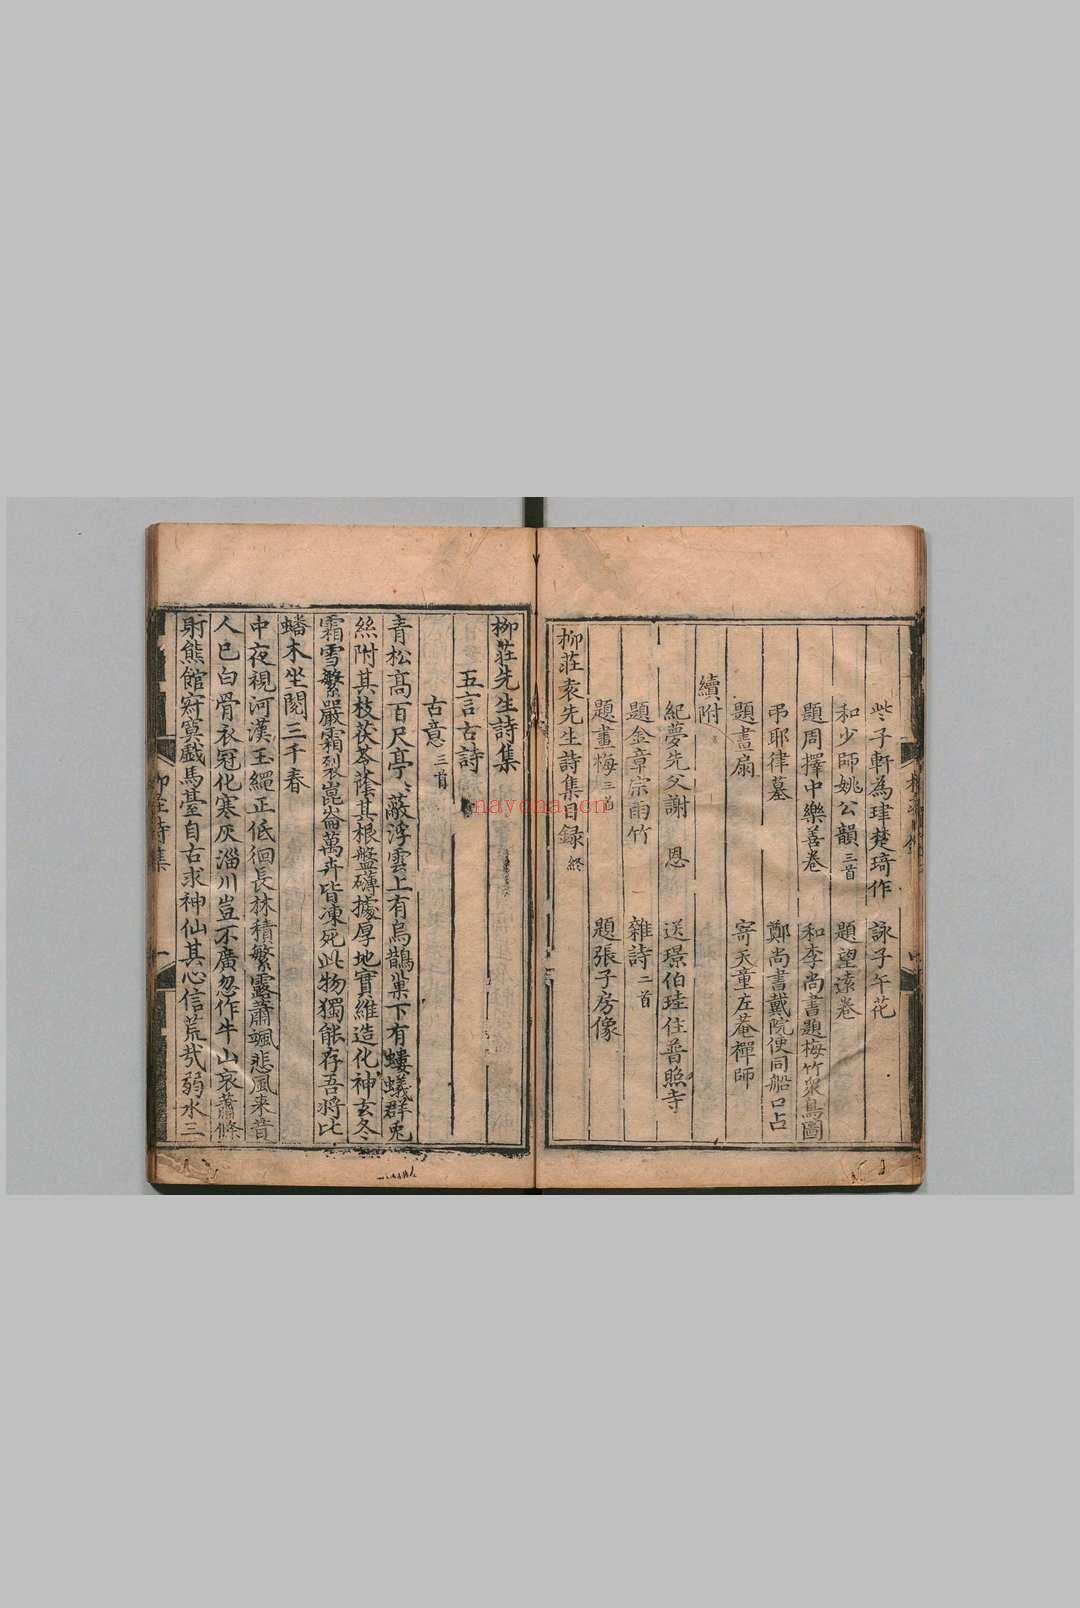 些子軒為珒楚琦作 詠子午花
和少師姚公韻三首 題望遠卷
題周擇中樂善卷 和李尚書題梅竹眾鳥圖
弔耶律墓 鄭尚書戴院使同船口占
題畫扇 寄天童左菴禪師
續附
紀夢先父謝 恩 送璟伯珪住普照寺
題金章宗雨竹 雜詩二首
題畫梅三首 題張子房像
柳莊袁先生詩集目録終
柳莊先生詩集
五言古詩
古意三首
青松髙百尺亭〻蔽浮雲上有烏鵲巢下有螻蟻群兎
絲附其枝茯苓蔭其根盤礴據厚地實維造化神玄冬
霜雪繁嚴霜裂崑崙萬卉皆凍死此物獨能存吾將比
蟠木坐閱三千春
中夜視河漢玉繩正低徊長林積繁露蕭颯悲風来昔
人已白骨衣冠化寒灰淄川豈不廣忽作牛山哀蕭條
射熊館寂寞戲馬臺自古求神仙其心信荒哉弱水三
柳莊詩集 一
nayona.cn